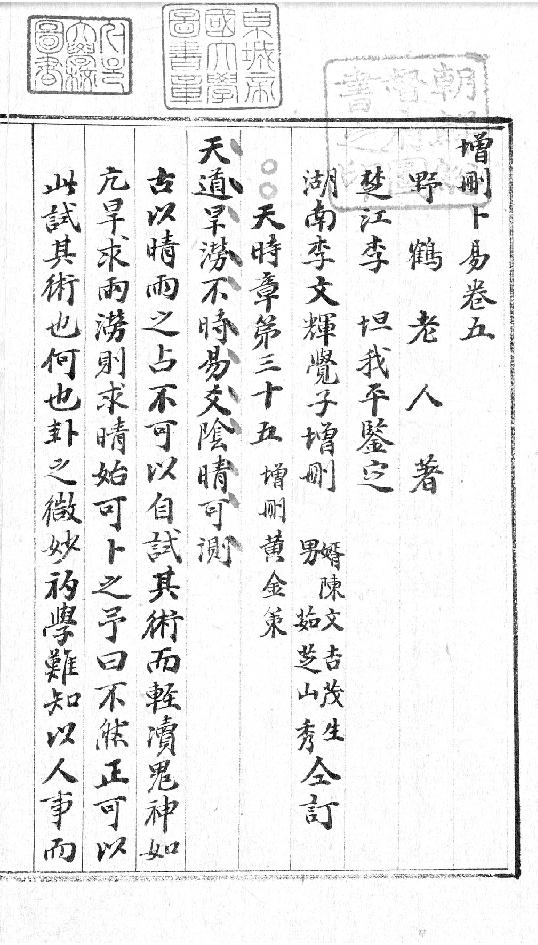 增刪卜易卷五
野鶴老人著
楚江李 坦我平鑒定
湖南李文輝覺子增刪 婿陳文吉茂生 男茹芝山秀 仝訂
天時章第三十五 增刪黃金策
天道旱澇不時易爻陰晴可測
古以晴雨之占不可以自試其術而輊瀆鬼神如
亢旱求雨澇則求晴始可卜之予曰不然正可以
此試其術也何也卦之微妙初學難知以人事而
京城帝國大學圖書章
圖書